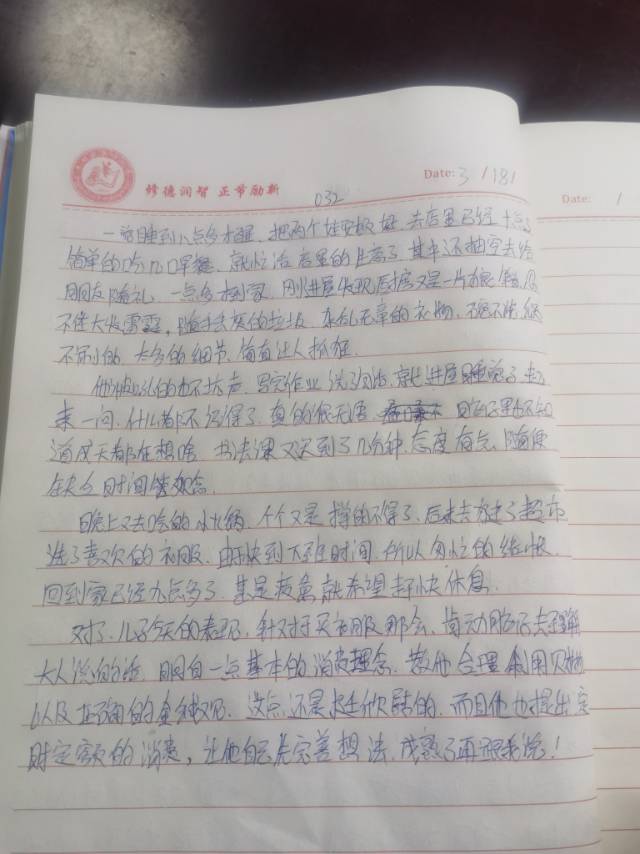 修德润智 正节励新
Date: 3/18/
Date: /
032
一觉睡到八点多才醒，把两个娃安顿好，去店里已经十点
简单的吃几口早餐，就忙活店里的生意了，其中还抽空去给
朋友随礼，一点多到家，刚进屋发现后房又是一片狼藉，
不使大发雷霆，随手丢弃的垃圾，杂乱无章的衣物，
不完的，太多的细节，简直让人抓狂
他俩的也不坑声，写完作业洗洗，就进屋睡觉了，起
来一问，什么都不记得了，真的很无语，自己都不知
道成天都在想啥，书法课又迟到了几分钟，态度有点随便
在缺乏时间观念。
晚上又去吃的小火锅，个个又是撑的不得了，后来去逛了超市
选了喜欢的衣服，由于快到下班时间，所以匆忙的结帐
回到家已经九点多了，甚是疲惫，就希望赶快休息
对了，儿子今天的表现，针对于买衣服那会，肯动脑筋去理解
大人说的话，明白一点基本的消费理念，教他合理利用
以及正确的金钱观，这点还是挺欣慰的，而且他也提出定
时定额的消费，让他自己先完善想法，成熟了再跟我说！